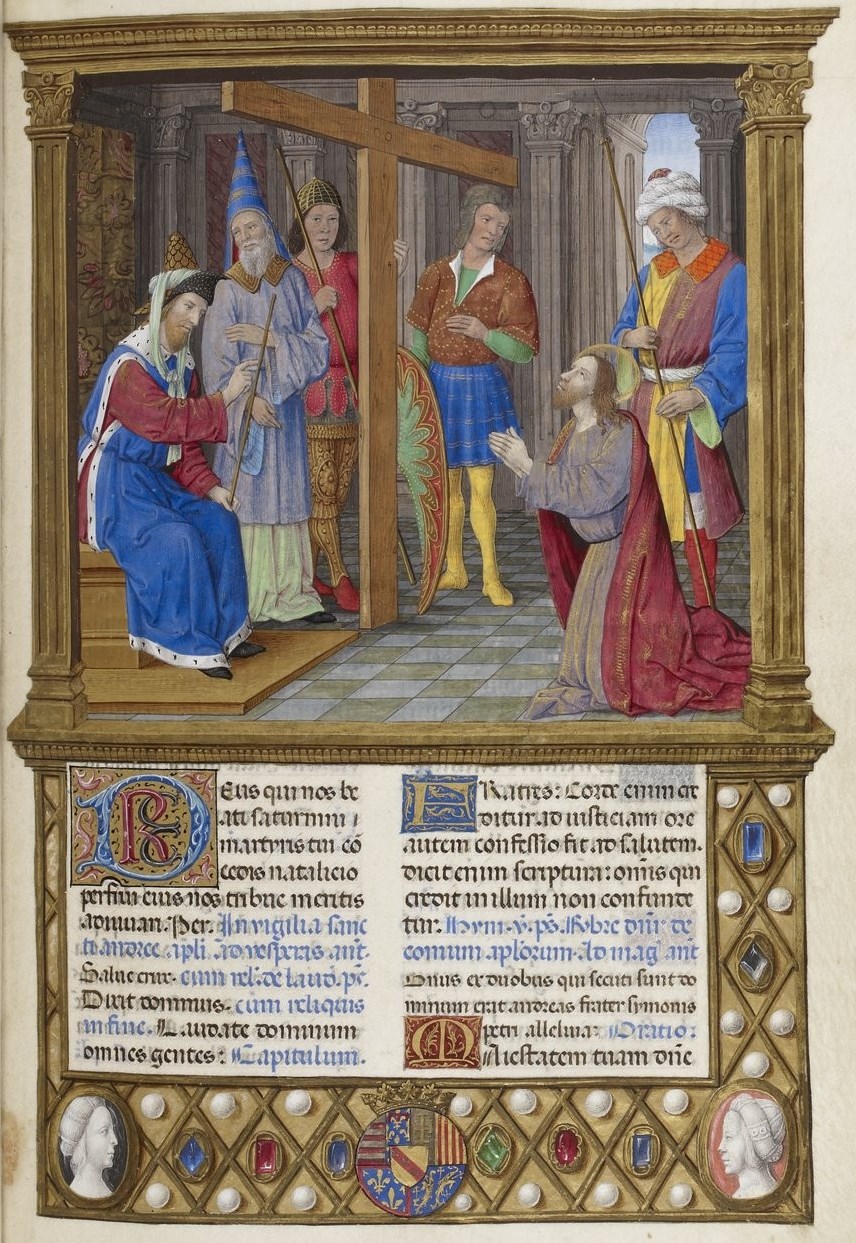 Deus qui nos be
ati saturnini
martyris tui cō
cedis natalicio
perfrui eius nos tribue meritis
adiuuari. Per. In vigilia sanc
ti andree apli. ad vesperas ant.
Salue crux. cum rel. de laud. ps.
Dixit dominus. cum reliquis
in fine. Laudate dominum
omnes gentes: Capitulum.
FRatres: Corde enim cre
ditur ad iusticiam ore
autem confessio fit ad salutem.
dicit enim scriptura: omnis qui
credit in illum non confunde
tur.
comum aplorum. Ad mag ant
Unus ex duobus qui secuti sunt do
minum erat andreas frater symonis
petri alleluia: Oratio:
Maiestatem tuam dñe